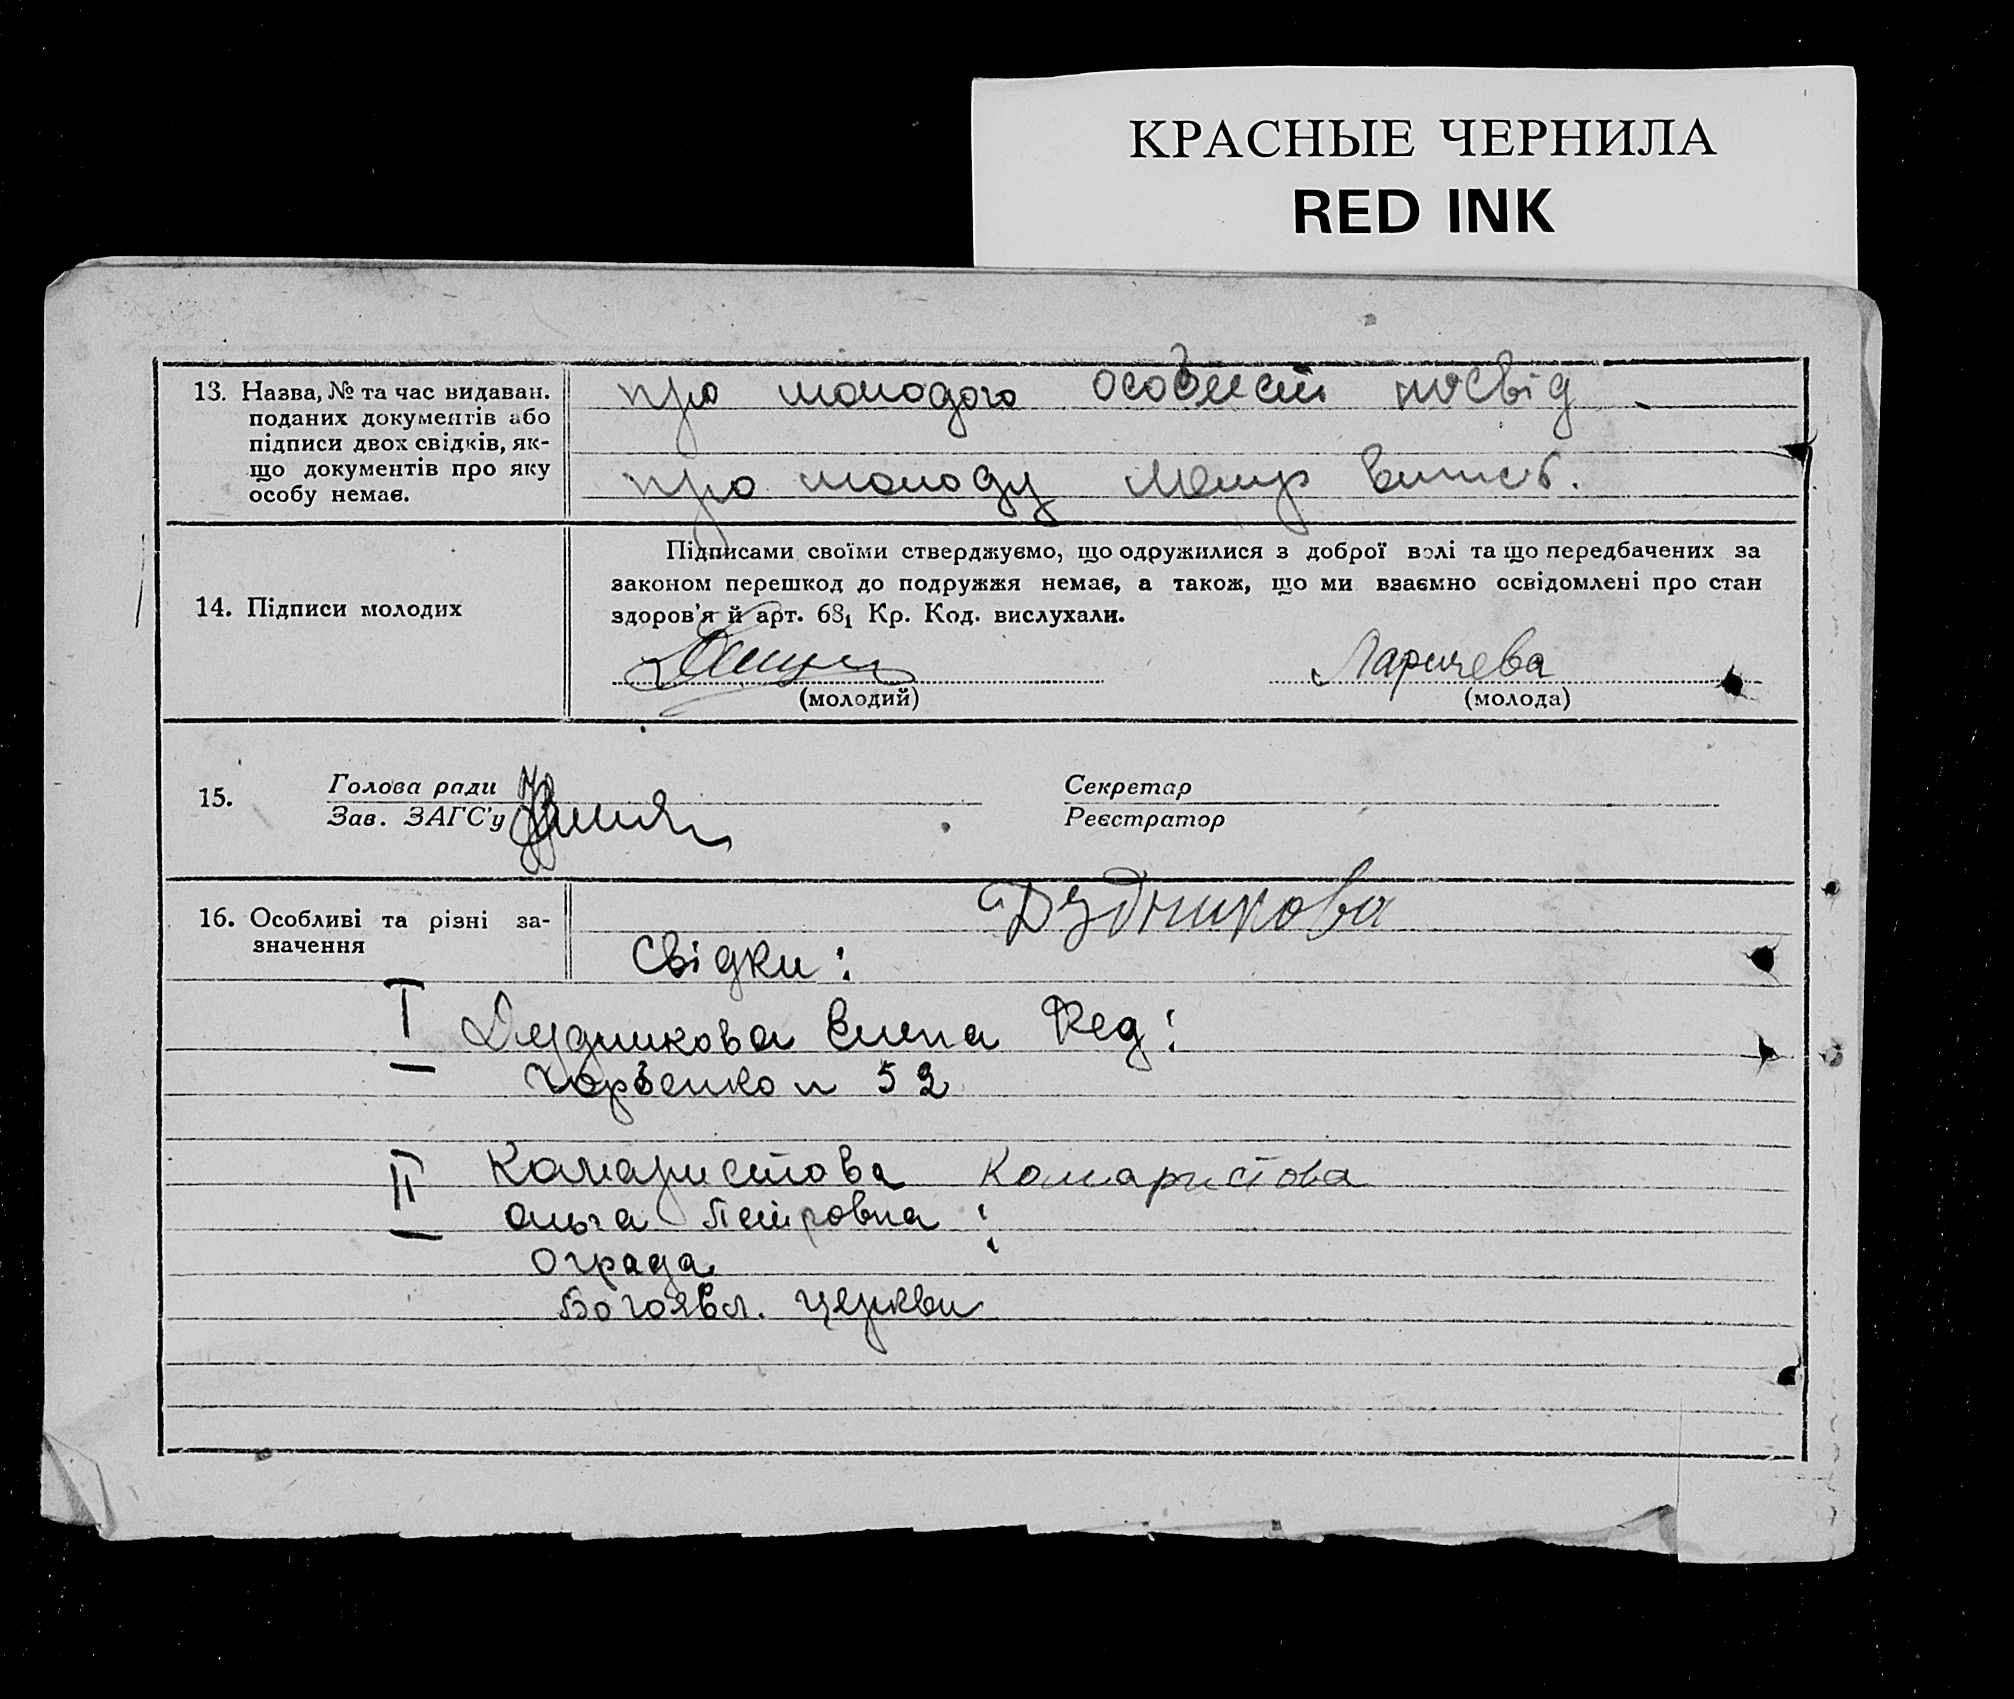 КРАСНЫЕ ЧЕРНИЛА
RED INK
13. Назва, № та час видаван.
поданих документів або
підписи двох свідків, як-
що документів про яку
особу немає.
про молодого особист посвід
про молоду метр випись.
14. Підписи молодих
Підписами своїми стверджуємо, що одружилися з доброї волі та що передбачених за
законом перешкод до подружжя немає, а також, що ми взаємно освідомлені про стан
здоров'я й арт. 68₁ Кр. Код. вислухали.
Ларичева
(молодий) (молода)
15. Голова ради
Зав. ЗАГС'у
Секретар
Реєстратор
16. Особливі та різні за-
значення
Дудникова
Свідки:
I Дудникова Елена Фед:
52
II Комаристова Комаристова
Ольга Петровна :
Ограда
Богоявл. церкви